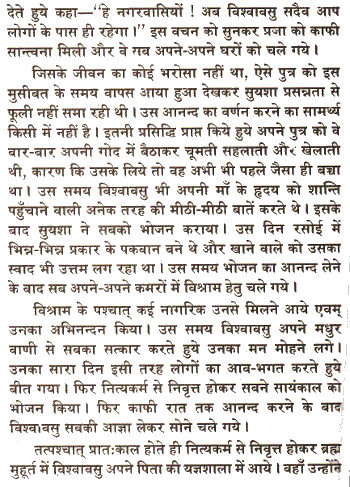 देते हुये कहा—“हे नगरवासियों ! अब विश्वावसु सदैव आप
लोगों के पास ही रहेगा।” इस वचन को सुनकर प्रजा को काफी
सान्त्वना मिली और वे सब अपने-अपने घरों को चले गये।
जिसके जीवन का कोई भरोसा नहीं था, ऐसे पुत्र को इस
मुसीबत के समय वापस आया हुआ देखकर सुयशा प्रसन्नता से
फूली नहीं समा रही थी। उस आनन्द का वर्णन करने का सामर्थ्य
किसी में नहीं है। इतनी प्रसिद्धि प्राप्त किये हुये अपने पुत्र को वे
बार-बार अपनी गोद में बैठाकर चूमती सहलाती और खेलाती
थी, कारण कि उसके लिये तो वह अभी भी पहले जैसा ही बच्चा
था। उस समय विश्वावसु भी अपनी माँ के हृदय को शान्ति
पहुँचाने वाली अनेक तरह की मीठी-मीठी बातें करते थे। इसके
बाद सुयशा ने सबको भोजन कराया। उस दिन रसोई में
भिन्न-भिन्न प्रकार के पकवान बने थे और खाने वाले को उसका
स्वाद भी उत्तम लग रहा था। उस समय भोजन का आनन्द लेने
के बाद सब अपने-अपने कमरों में विश्राम हेतु चले गये।
विश्राम के पश्चात् कई नागरिक उनसे मिलने आये एवम्
उनका अभिनन्दन किया। उस समय विश्वावसु अपने मधुर
वाणी से सबका सत्कार करते हुये उनका मन मोहने लगे।
उनका सारा दिन इसी तरह लोगों का आव-भगत करते हुये
बीत गया। फिर नित्यकर्म से निवृत्त होकर सबने सायंकाल को
भोजन किया। फिर काफी रात तक आनन्द करने के बाद
विश्वावसु सबकी आज्ञा लेकर सोने चले गये।
तत्पश्चात् प्रातःकाल होते ही नित्यकर्म से निवृत्त होकर ब्रह्म
मुहूर्त में विश्वावसु अपने पिता की यज्ञशाला में आये। वहाँ उन्होंने